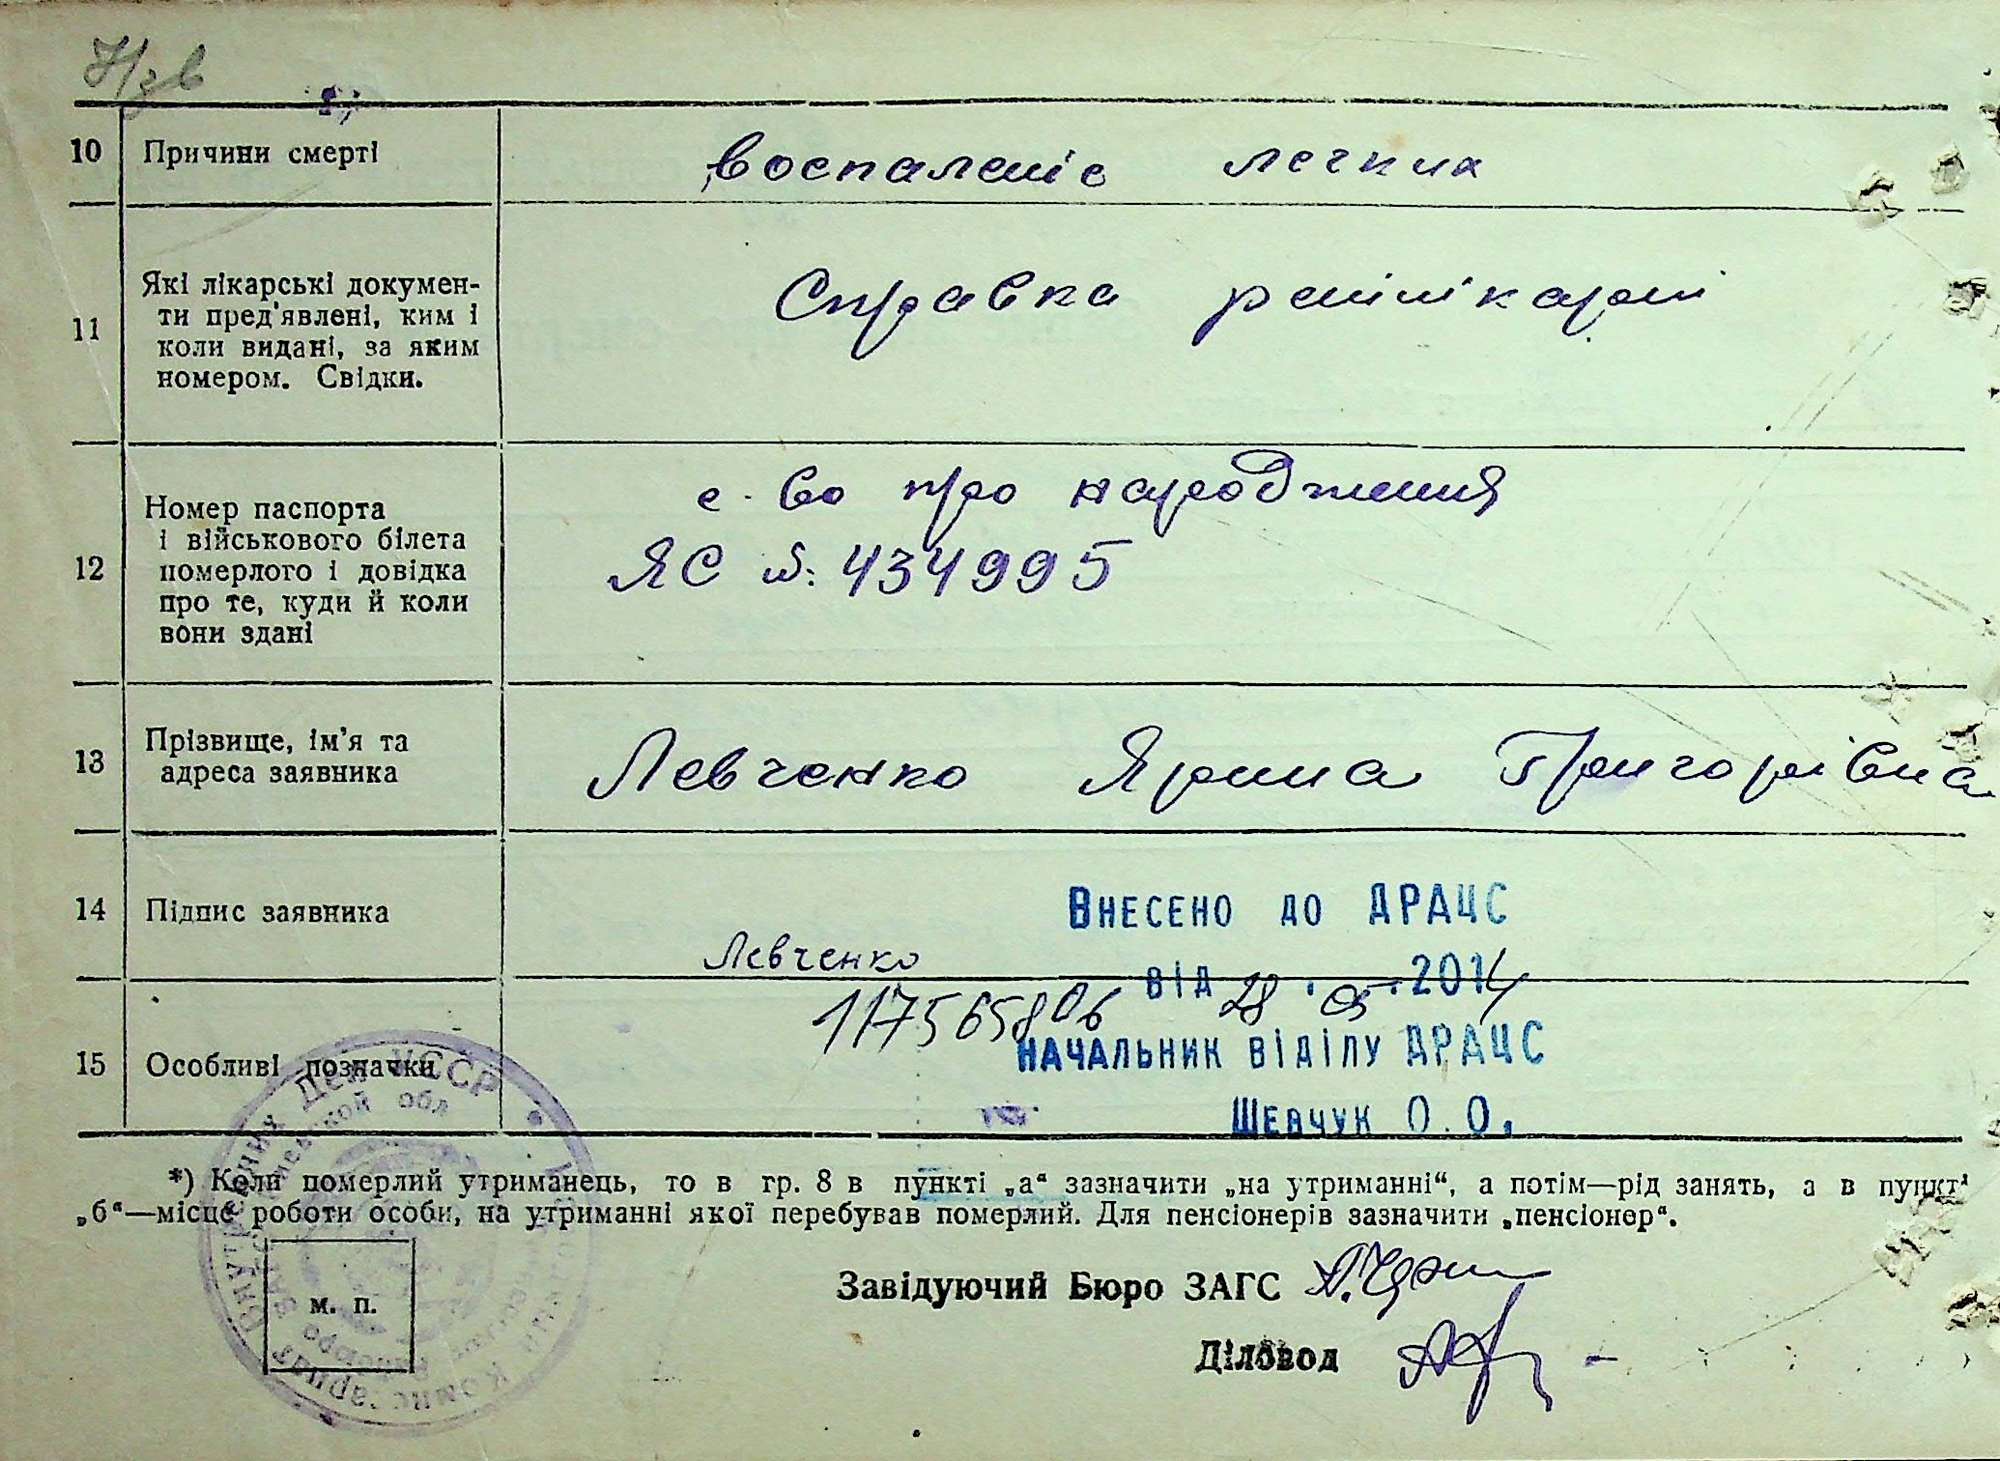 10 Причини смерті
воспаленіе легких
11 Які лікарські докумен-
ти пред'явлені, ким і
коли видані, за яким
номером. Свідки.
Справка
12 Номер паспорта
і військового білета
померлого і довідка
про те, куди й коли
вони здані
с-во про народження
ЯС №: 434995
13 Прізвище, ім'я та
адреса заявника
Левченко Ярина Григорівна
14 Підпис заявника
Левченко
Внесено до ДРАЦС
від 28.05.2014
117565806
начальник відділу ДРАЦС
Шевчук О.О.
15 Особливі позначки
*) Коли померлий утриманець, то в гр. 8 в пункті „а“ зазначити „на утриманні“, а потім—рід занять, а в пункті
„б“—місце роботи особи, на утриманні якої перебував померлий. Для пенсіонерів зазначити „пенсіонер“.
м. п.
Завідуючий Бюро ЗАГС
Діловод